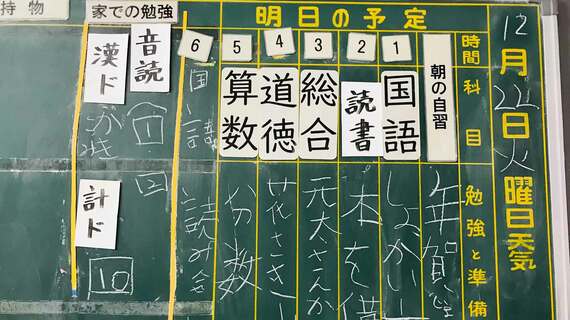 持物
家での勉強
明日の予定
12月22日火曜日天気
時間
科目
勉強と準備
朝の自習
年賀
1
国語
しょかい
2
読書
本を借
3
総合
元大さんか
4
道徳
花さき
5
算数
分数
6
国
読み会
音読
①
②
漢ド
かき
計ド
10